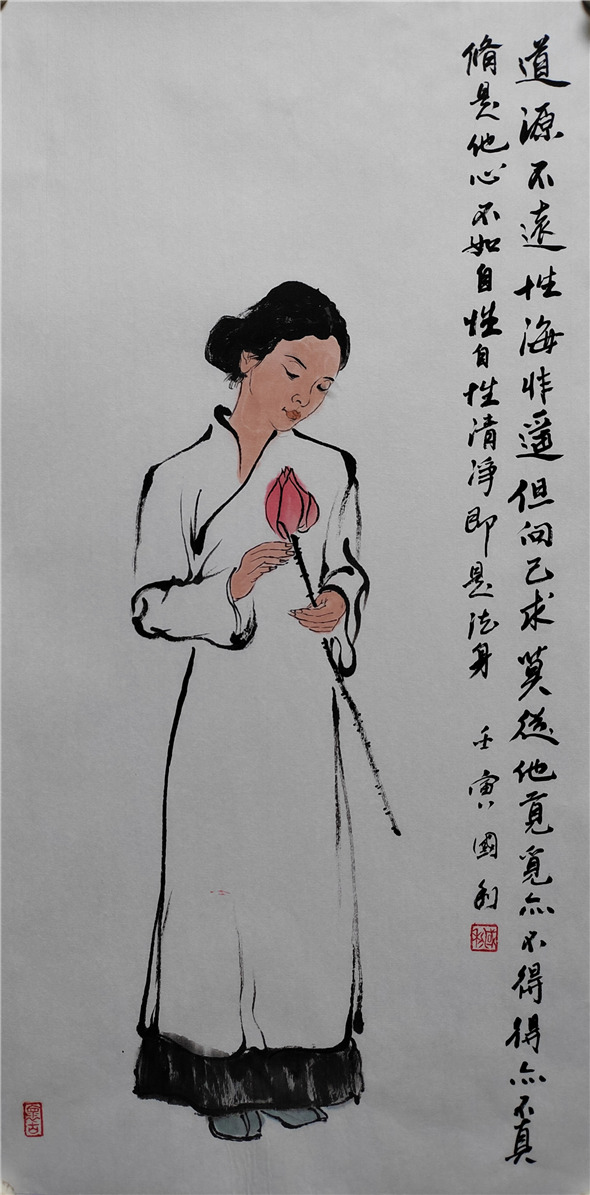 道源不遠性海非遥但向己求莫從他覓覓亦不得得亦不真
脩是他心不如自性自性清净即是法身 壬寅國利
國利